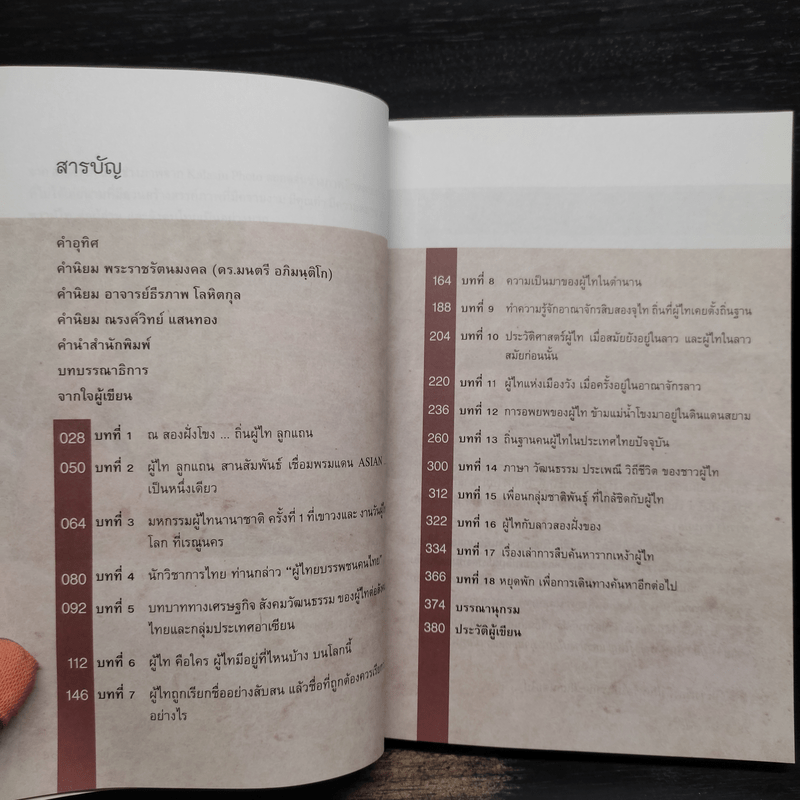 สารบัญ
คำอุทิศ
คำนิยม พระราชรัตนมงคล (ดร.มนตรี อภิมนฺติโก)
คำนิยม อาจารย์ธีรภาพ โลหิตกุล
คำนิยม ณรงค์วิทย์ แสนทอง
คำนำสำนักพิมพ์
บทบรรณาธิการ
จากใจผู้เขียน
028 บทที่ 1 ณ สองฝั่งโขง ... ถิ่นผู้ไท ลูกแถน
050 บทที่ 2 ผู้ไท ลูกแถน สานสัมพันธ์ เชื่อมพรมแดน ASIAN
เป็นหนึ่งเดียว
064 บทที่ 3 มหกรรมผู้ไทนานาชาติ ครั้งที่ 1 ที่เขาวงและ งานวันผู้ไท
โลก ที่เรณูนคร
080 บทที่ 4 นักวิชาการไทย ท่านกล่าว "ผู้ไทยบรรพชนคนไทย"
092 บทที่ 5 บทบาททางเศรษฐกิจ สังคมวัฒนธรรม ของผู้ไทต่อ
ไทยและกลุ่มประเทศอาเซียน
112 บทที่ 6 ผู้ไท คือใคร ผู้ไทมีอยู่ที่ไหนบ้าง บนโลกนี้
146 บทที่ 7 ผู้ไทถูกเรียกชื่ออย่างสับสน แล้วชื่อที่ถูกต้องควรเรียก
อย่างไร
164 บทที่ 8 ความเป็นมาของผู้ไทในตำนาน
188 บทที่ 9 ทำความรู้จักอาณาจักรสิบสองจุไท ถิ่นที่ผู้ไทเคยตั้งถิ่นฐาน
204 บทที่ 10 ประวัติศาสตร์ผู้ไท เมื่อสมัยยังอยู่ในลาว และผู้ไทในลาว
สมัยก่อนนั้น
220 บทที่ 11 ผู้ไทแห่งเมืองวัง เมื่อครั้งอยู่ในอาณาจักรลาว
236 บทที่ 12 การอพยพของผู้ไท ข้ามแม่น้ำโขงมาอยู่ในดินแดนสยาม
260 บทที่ 13 ถิ่นฐานคนผู้ไทในประเทศไทยปัจจุบัน
300 บทที่ 14 ภาษา วัฒนธรรม ประเพณี วิถีชีวิต ของชาวผู้ไท
312 บทที่ 15 เพื่อนกลุ่มชาติพันธุ์ ที่ใกล้ชิดกับผู้ไท
322 บทที่ 16 ผู้ไทกับลาวสองฝั่งของ
334 บทที่ 17 เรื่องเล่าการสืบค้นหารากเหง้าผู้ไท
366 บทที่ 18 หยุดพัก เพื่อการเดินทางค้นหาอีกต่อไป
374 บรรณานุกรม
380 ประวัติผู้เขียน